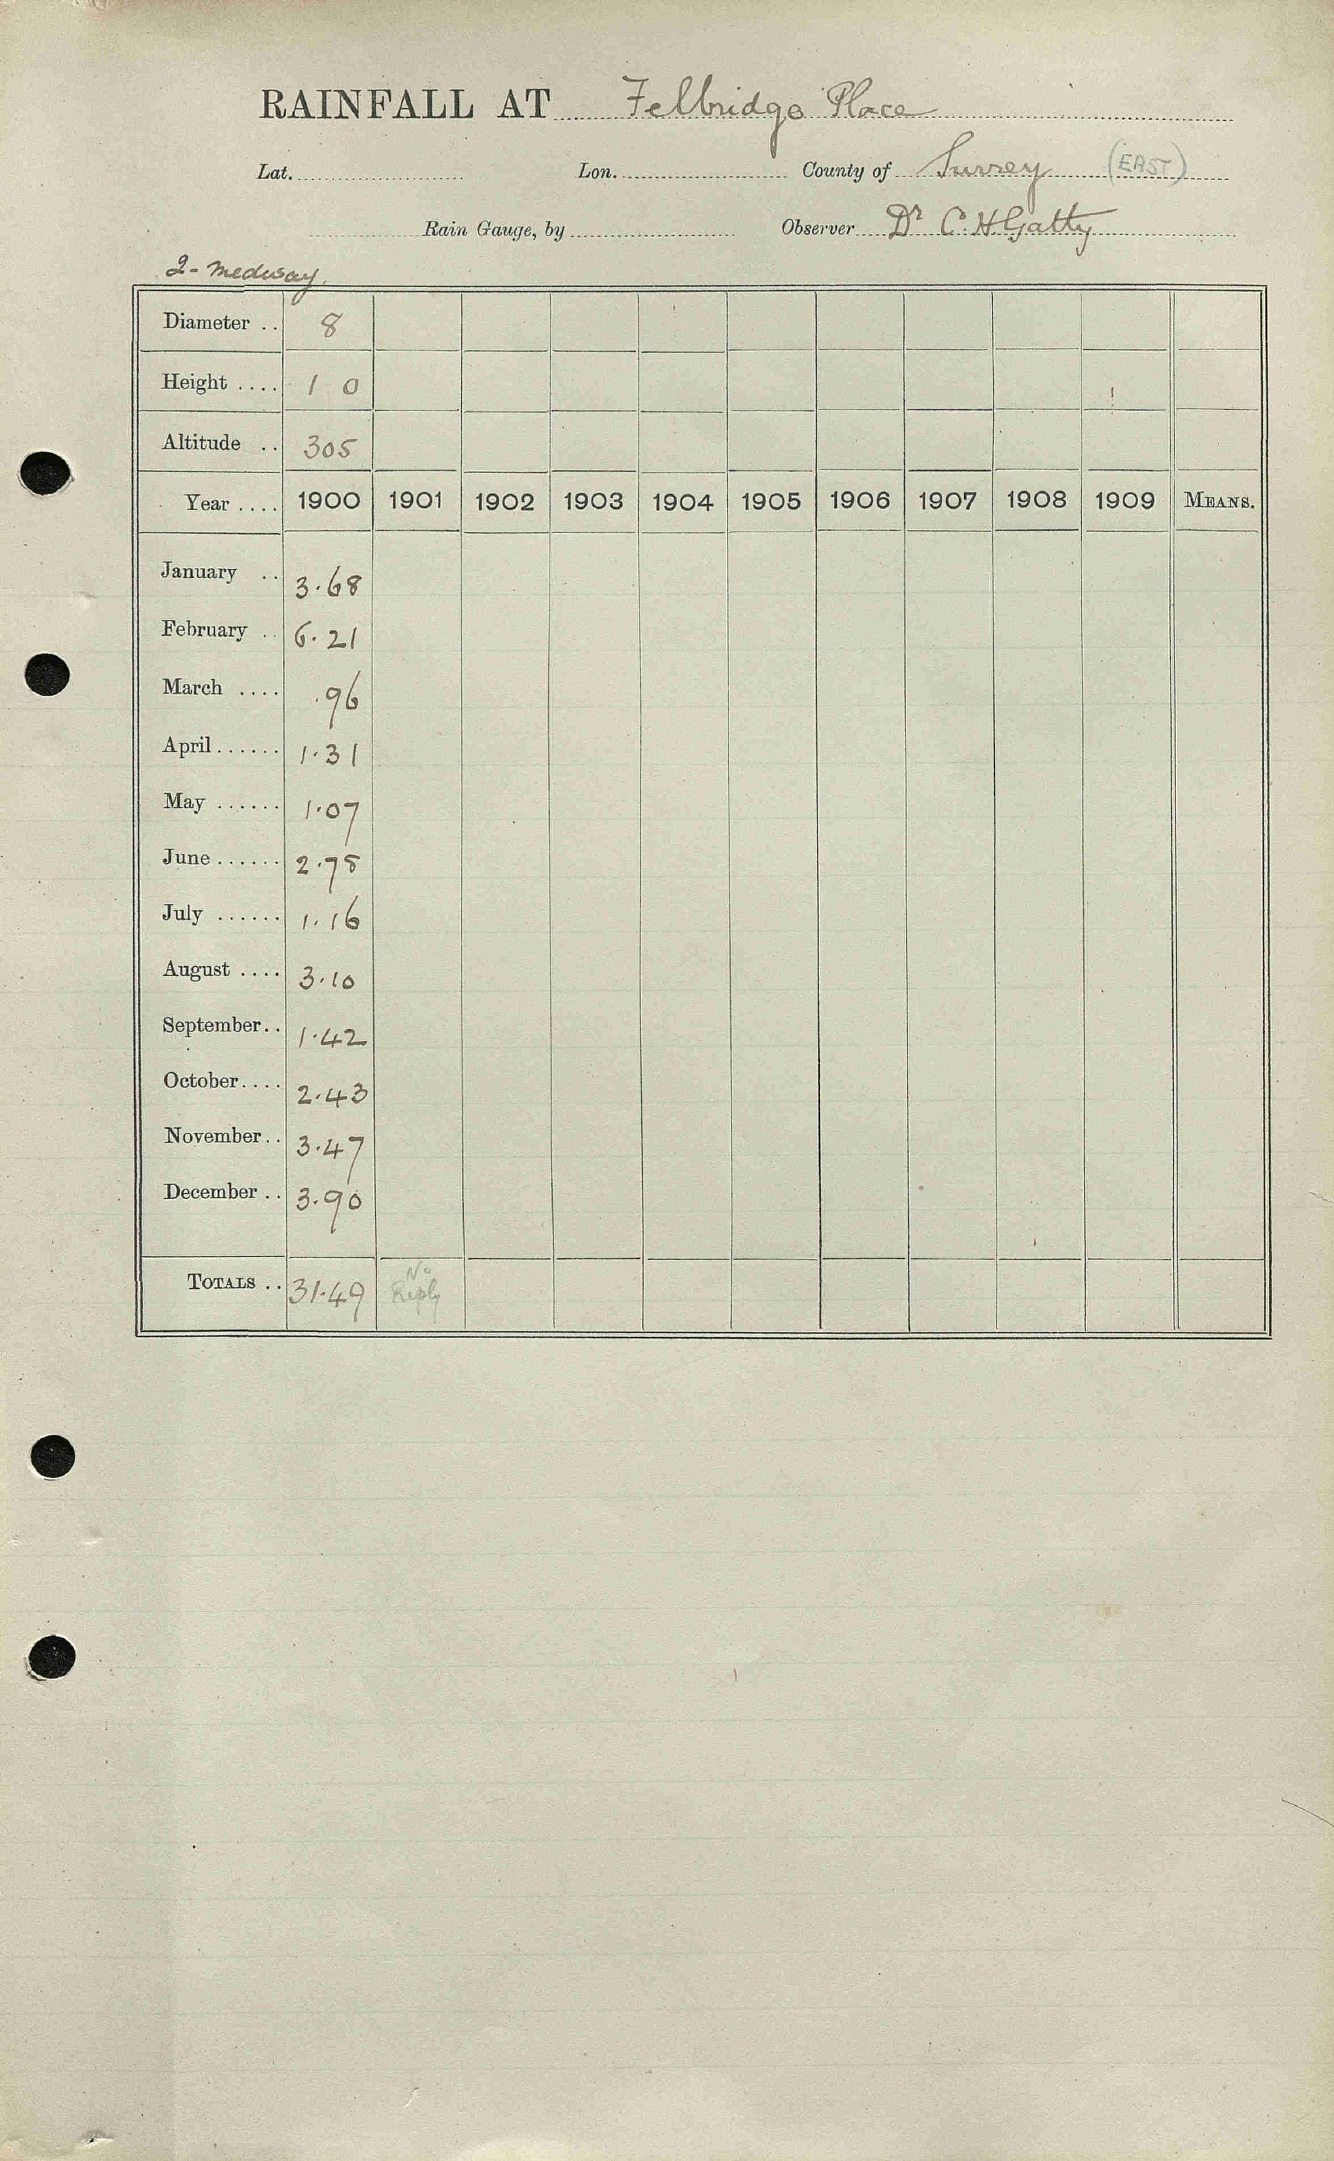 RAINFALL AT Felbridge Place
Lat. Lon. County of Surrey (EAST)
Rain Gauge, by Observer Dr C. H Gatty
2 - Medway.
Diameter .. 8
Height .... 1 0
Altitude .. 305
Year .... 1900 1901 1902 1903 1904 1905 1906 1907 1908 1909 MEANS.
January .. 3.68
February .. 6.21
March .... .96
April ...... 1.31
May ...... 1.07
June ...... 2.78
July ...... 1.16
August .... 3.10
September .. 1.42
October .... 2.43
November .. 3.47
December .. 3.90
TOTALS .. 31.49 No Reply